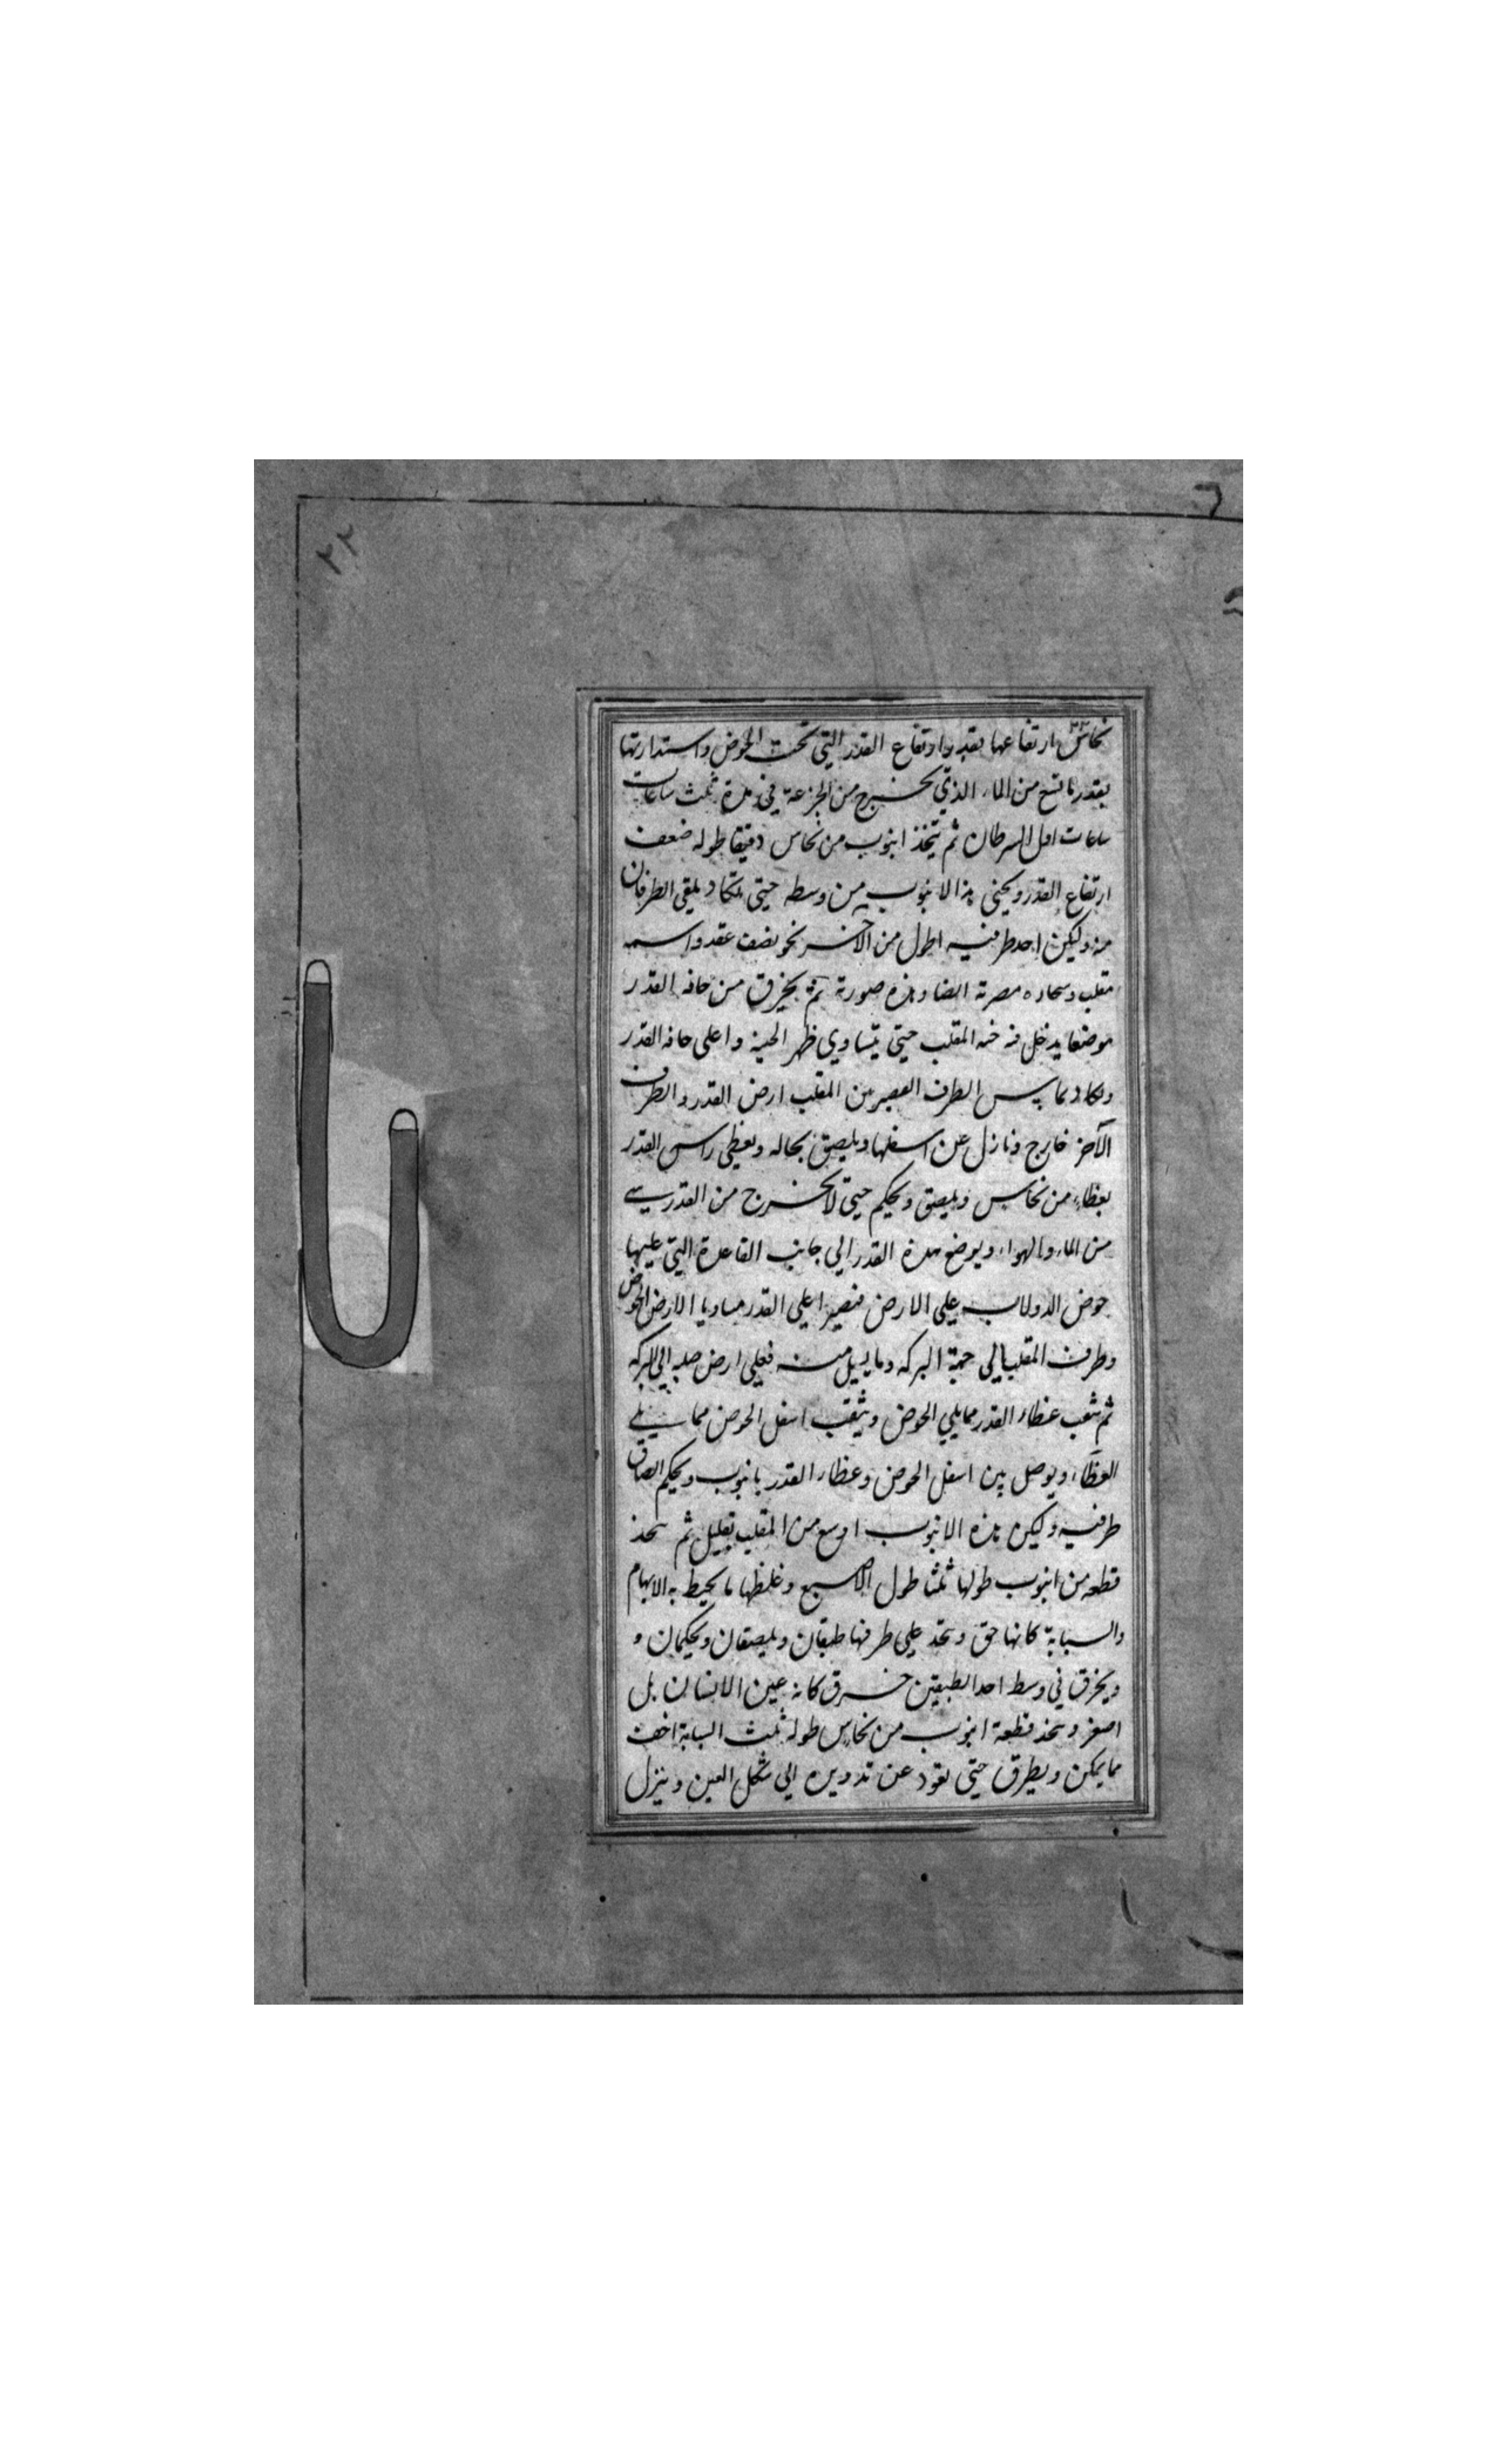 ٢٢
نحاس ارتفاعها بقدر ارتفاع القدر التي تحت الحوض واستدارتها
بقدر ما تسع من الماء الذي يخرج من الجزعة في مدة ثلث ساعات
ساعات اول السرطان ثم يتخذ انبوب من نحاس دقيقا طوله ضعف
ارتفاع القدر ويحنى هذا الانبوب من وسطه حتى يتكاد يلقى الطرفان
منه وليكن احد طرفيه اطول من الاخر نحو نصف عقد واسمه
مقلب وسحاره مصرية ايضا وهذه صورته ثم يخرق من حافه القدر
موضعا يدخل فيه المقلب حتى يتساوي ظهر الحنية واعلى حافه القدر
ويكاد يماس الطرف القصير من المقلب ارض القدر والطرف
الآخر خارج ونازل عن اسفلها ويلصق بحاله ويغطى راس القدر
بغطاء من نحاس ويلصق ويحكم حتى لا يخرج من القدر شي
من الماء والهواء ويوضع هذه القدر الي جانب القاعدة التي عليها
حوض الدولاب على الارض فيصير اعلي القدر مساويا الارض الحوض
وطرف المقلب الي جهة البركه وما يسيل منه فعلى ارض صلبه الي البركه
ثم يثقب غطاء القدر مما يلي الحوض ويثقب اسفل الحوض مما يلي
الغطاء ويوصل بين اسفل الحوض وغطاء القدر بانبوب ويحكم الصاق
طرفيه وليكن هذه الانبوب اوسع من المقلب بقليل ثم يتخذ
قطعه من انبوب طولها ثلثا طول الاصبع وغلظها ما يحيط به الابهام
والسبابة كانها حق ويتخذ علي طرفها طبقان ويلصقان ويحكمان و
ويخرق في وسط احد الطبقين خرق كانه عين الانسان بل
اصغر ويتخذ قطعة انبوب من نحاس طوله ثلث السبابة اخف
مما يمكن ويطرق حتى يعود عن تدويره الي شكل العين وينزل